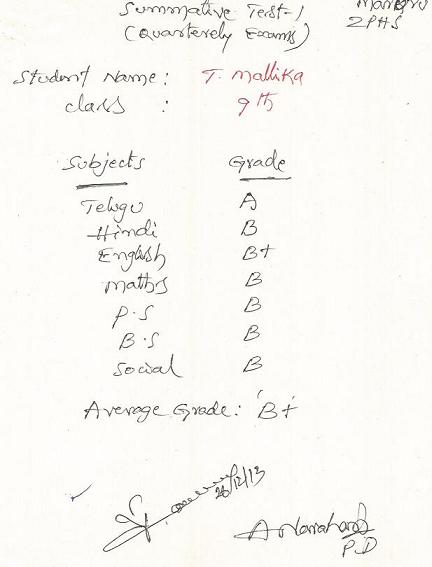 Summative Test-1
(Quarterely Exams)
ZPHS
Student Name: T. Mallika
class : 9th
Subjects Grade
Telugu A
Hindi B
English B+
Maths B
P.S B
B.S B
Social B
Average Grade: 'B+
26/12/13
P.D